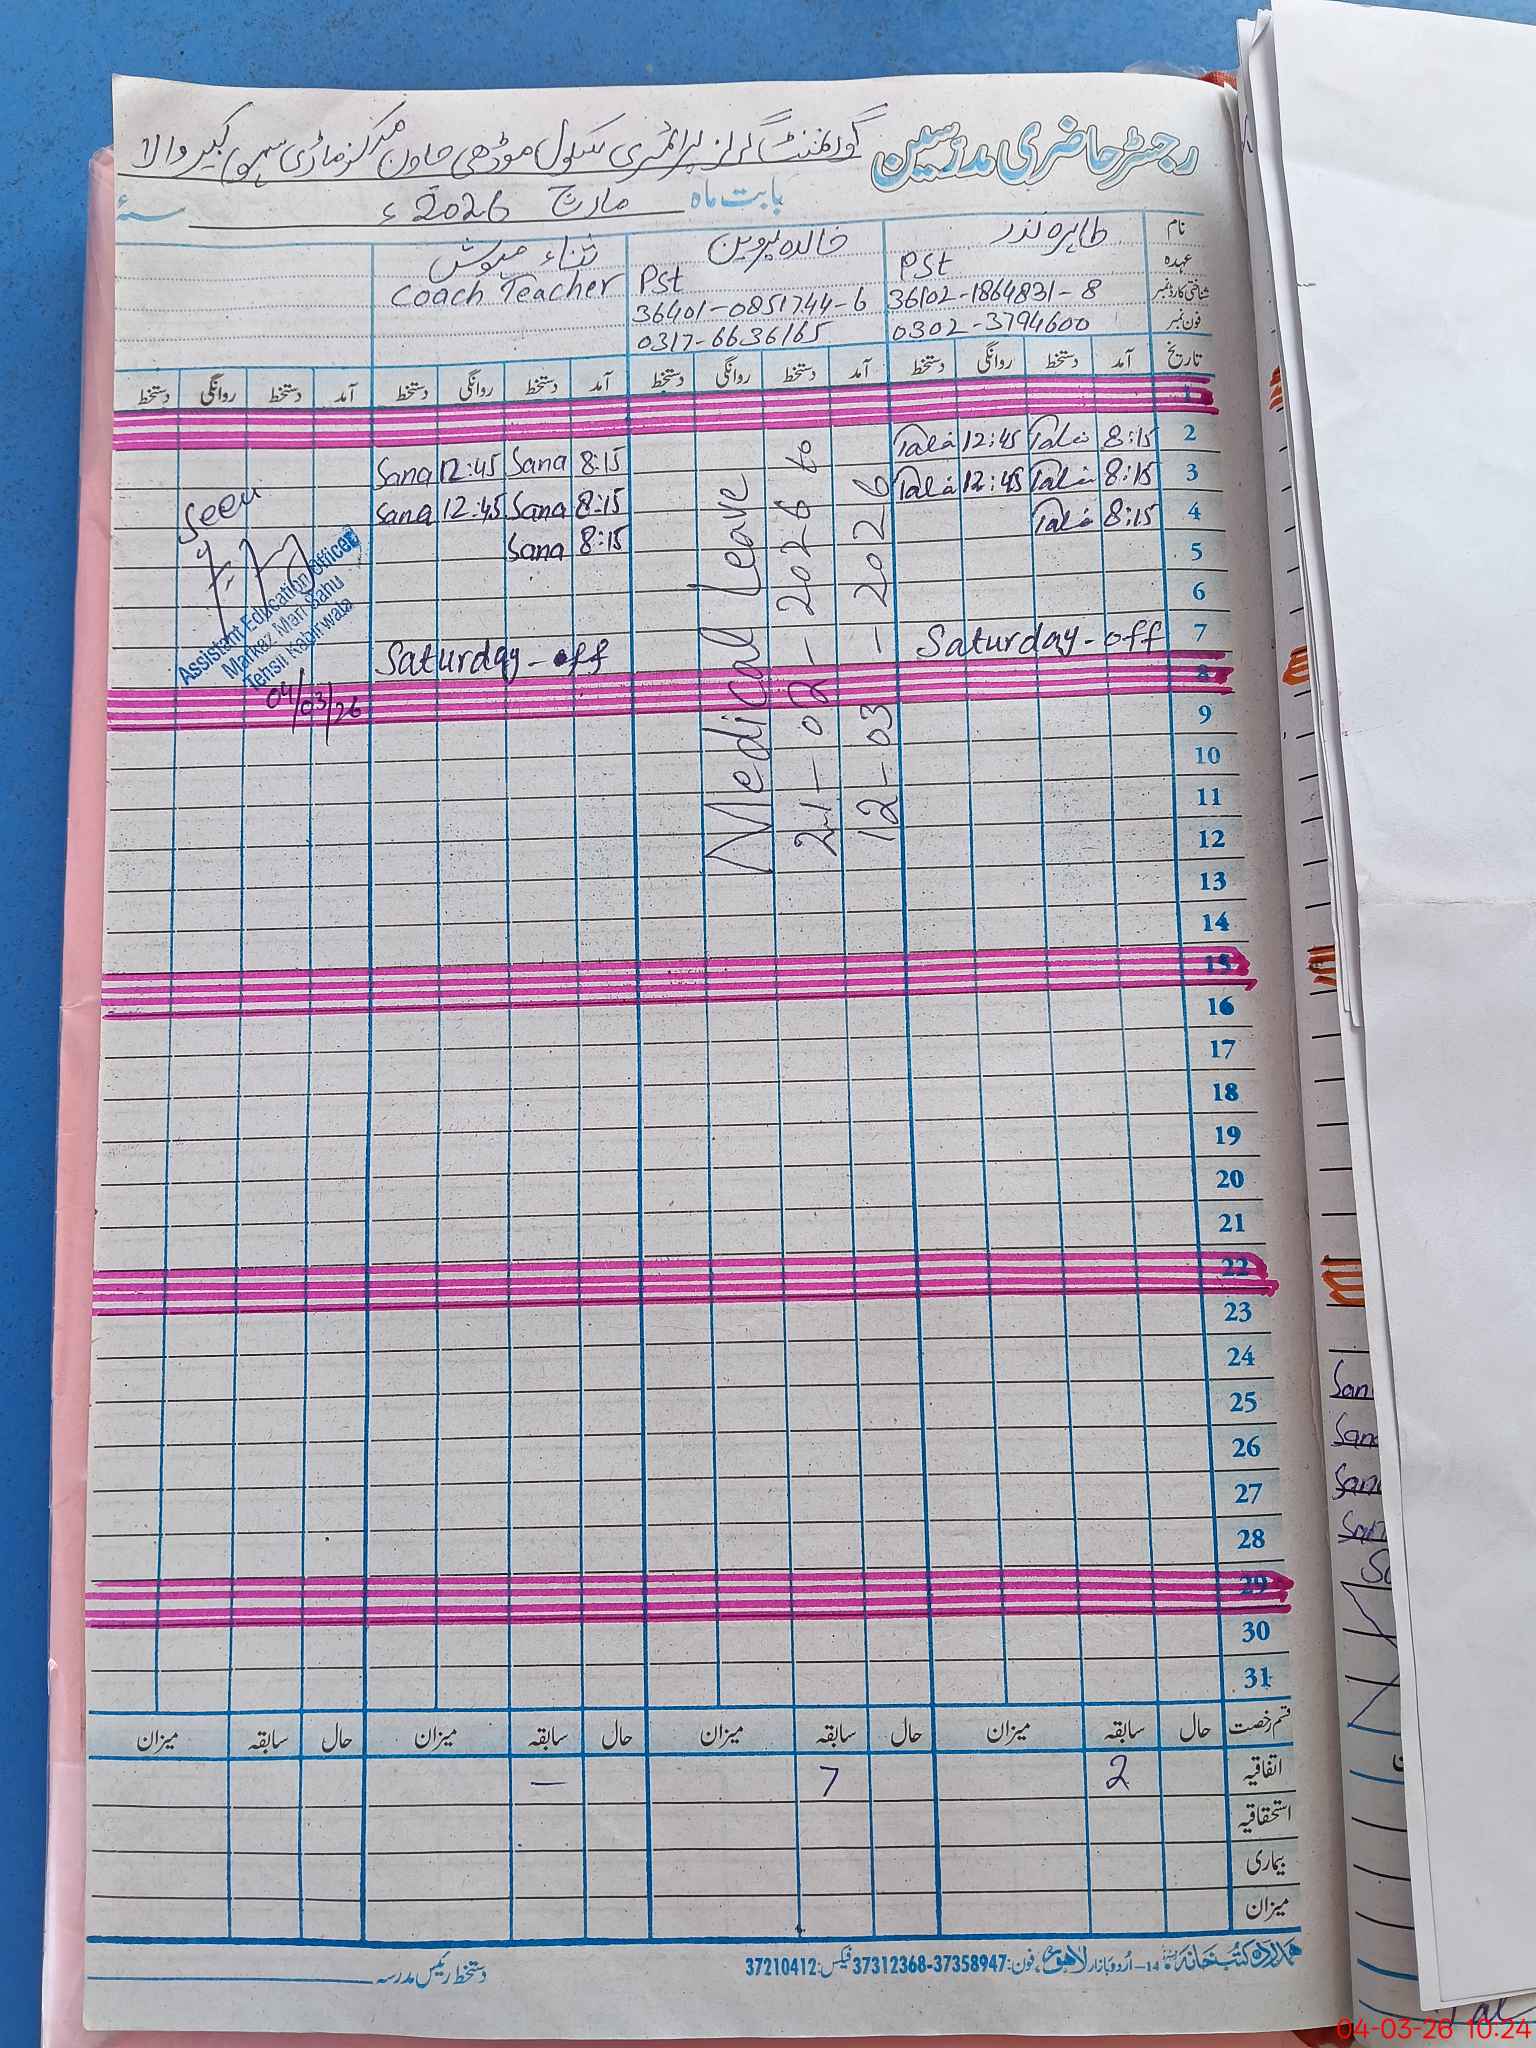 رجسٹر حاضری مدرسین گورنمنٹ گرلز پرائمری سکول موڈھی حاون مرکز ماڑی سہو کبیر والا
بابت ماہ مارچ 2026ء سنہء
نام طاہرہ نذر خالدہ پروین ثناء مہوش
عہدہ PSt PSt Coach Teacher
شناختی کارڈ نمبر 36102-1864831-8 36401-0851744-6
فون نمبر 0302-3794600 0317-6636165
تاریخ آمد دستخط روانگی دستخط آمد دستخط روانگی دستخط آمد دستخط روانگی دستخط آمد دستخط روانگی دستخط
1
2 8:15 12:45 8:15 Sana 12:45 Sana
3 8:15 12:45 8:15 Sana 12:45 Sana
4 8:15 8:15 Sana
5
6
7 Saturday-off Saturday-off
8
9
10
11
12
13
14
15
16
17
18
19
20
21
22
23
24
25
26
27
28
29
30
31
Medical Leave
21-02-2026 to
12-03-2026
Seen
Assistant Education Officer
Markaz Mari Sahu
Tehsil Kabirwala
04/03/26
قسم رخصت حال سابقہ میزان حال سابقہ میزان حال سابقہ میزان حال سابقہ میزان
اتفاقیہ 2 7 —
استحقاقیہ
بیماری
میزان
ہمدرد کتب خانہ 14-اُردو بازار لاہور، فون: 37358947-37312368 فیکس: 37210412
دستخط رئیس مدرسہ
San
Sana
Sana
San
04-03-26 10:24